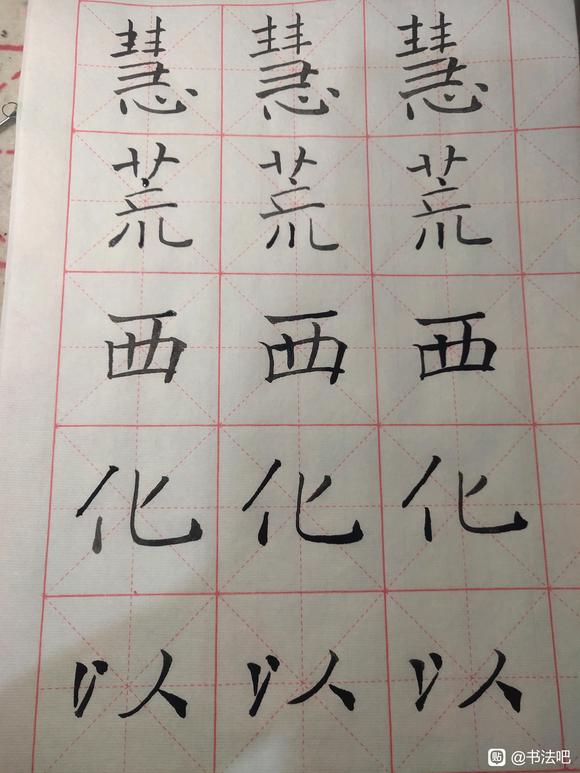 慧慧慧
荒荒荒
西西西
化化化
以以以
贴 @书法吧